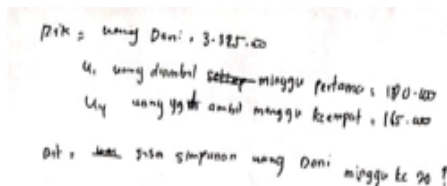 Dik : uang Deni : 3.325.00
U1 uang diambil setiap minggu pertama : 180.000
U4 uang yg di ambil minggu keempat : 165.000
Dit : sisa simpanan uang Deni minggu ke 20 ?